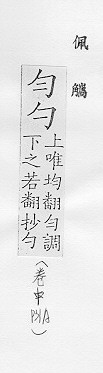 佩觿
勻勺
上唯均翻勻調
下之若翻抄勺
(卷中